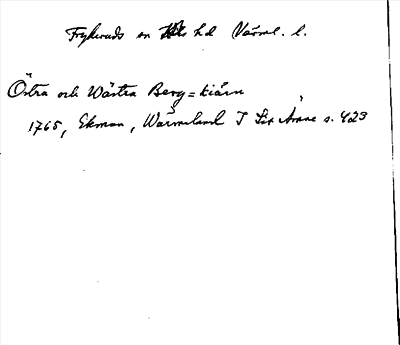 Frykeruds sn Kils hd Värml. l.
Östra och Wästra Berg=kiärn
1765, Ekman, Wärmeland I sin Ämne s. 423